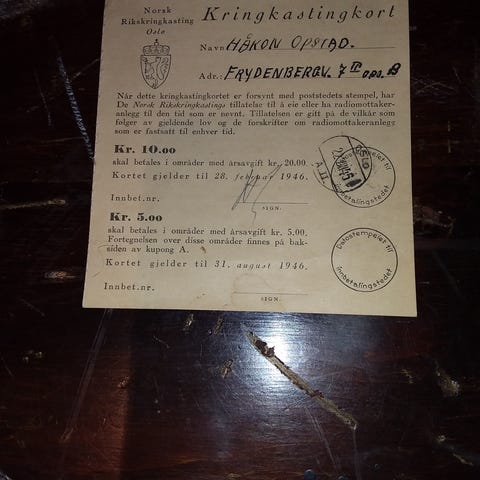 Norsk
Rikskringkasting
Oslo
Kringkastingkort
Navn HÅKON OPSTAD.
Adr.: FRYDENBERGV. 7 II OPG. B
Når dette kringkastingkort er forsynt med poststedets stempel, har
De Norsk Rikskringkastings tillatelse til å eie eller ha radiomottaker-
anlegg til den tid som er nevnt. Tillatelsen er gitt på de vilkår som
følger av gjeldende lov og de forskrifter om radiomottakeranlegg
som er fastsatt til enhver tid.
Kr. 10.00
skal betales i områder med årsavgift kr. 20.00.
Kortet gjelder til 28. februar 1946.
Innbet.nr.
SIGN.
OSLO
Kr. 5.00
skal betales i områder med årsavgift kr. 5.00.
Fortegnelsen over disse områder finnes på bak-
siden av kupong A.
Kortet gjelder til 31. august 1946.
Innbet.nr.
SIGN.
Datostempelet til
innbetalingstedet